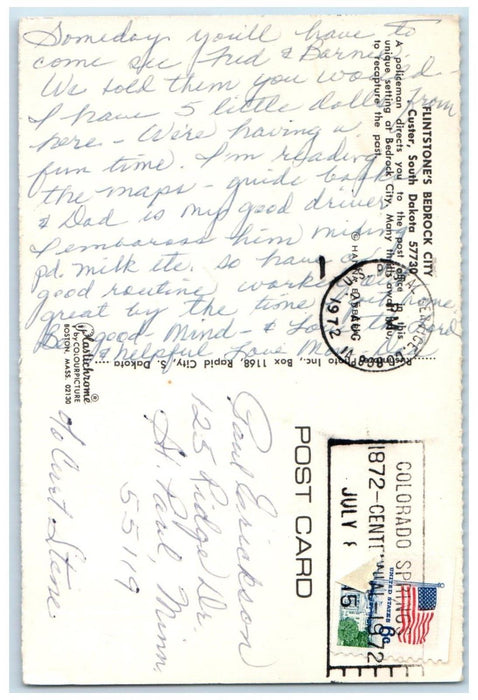 Someday you'll have to
come see Fred & Barney.
We told them you worked
I have 5 little dolls from
here - We're having a
fun time. I'm reading
the maps - guide books
& Dad is my good driver
I embarass him mixing
pd. milk etc. so have a
good routine worked
great by the time home.
Be good Mind - & work hard
& helpful Love Mom
FLINTSTONE'S BEDROCK CITY
Custer, South Dakota 57730
A policeman directs you to the post office in this
unique setting at Bedrock City. Many thrills await you
to recapture the past.
© HANNA-BARBERA
Photo Inc., Box 1168, Rapid City, S. Dakota
Plastichrome®
by COLOURPICTURE
BOSTON, MASS. 02130
POST CARD
Paul Erickson
125 Ridge Dr
St. Paul, Minn.
55119
% Curt Stene
COLORADO SPRINGS
1872-CENTENNIAL-1972
JULY
UNITED STATES 8c
PM
AUG
1972